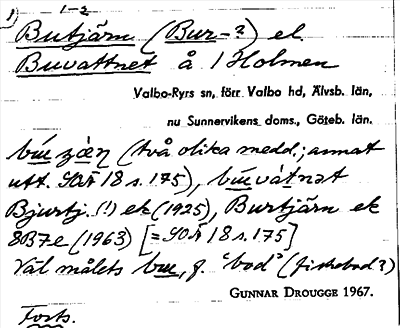 1) 1-2
Butjärn (Bur-?) el
Buvattnet å 1 Holmen
Valbo-Ryrs sn, förr Valbo hd, Älvsb. län,
nu Sunnervikens doms., Göteb. län.
(två olika medd.; annat
utt. SOÄ 18 s. 175),
Bjurtj. (!) ek (1925), Burtjärn ek
8B7e (1963) [= SOÄ 18 s. 175]
Väl målets bu, f. "bod" (fiskebod?)
GUNNAR DROUGGE 1967.
Forts.